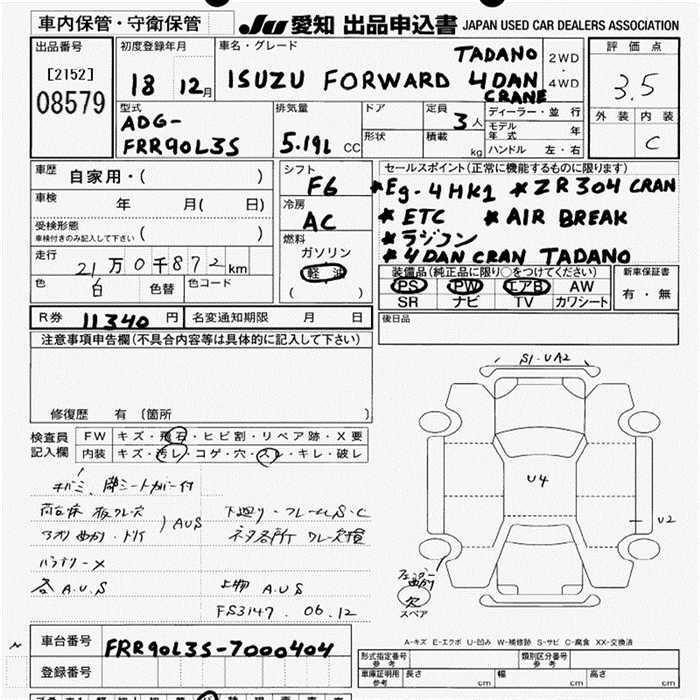 車内保管・守衛保管 JU 愛知 出品申込書 JAPAN USED CAR DEALERS ASSOCIATION
出品番号 [2152] 08579
初度登録年月 18 12月
車名・グレード ISUZU FORWARD TADANO 4DAN CRANE
2WD ・ 4WD
評価点 3.5
外装 内装 C
型式 ADG-FRR90L3S
排気量 5.19L CC
ドア 形状
定員 3人
積載 kg
ディーラー・並行
モデル年式 年
ハンドル 左・右
車歴 自家用・( )
車検 年 月( 日)
受検形態 車検付きのみ記入して下さい ( )
走行 21万0千872km
色 白 色替 色コード
シフト F6
冷房 AC
燃料 ガソリン 軽油 ( )
セールスポイント(正常に機能するものに限ります)
*Eg-4HK1 *ZR304 CRAN
*ETC *AIR BREAK
*ラジコン
*4DAN CRAN TADANO
装備品(純正品に限り○をつけてください)
PS PW エアB AW
SR ナビ TV カワシート
新車保証書 有・無
R券 11340 円 名変通知期限 月 日
後日品
注意事項申告欄(不具合内容等は具体的に記入して下さい)
修復歴 有 (箇所 )
検査員記入欄
FW キズ・飛石・ヒビ割・リペア跡・X要
内装 キズ・汚レ・コゲ・穴・スレ・キレ・破レ
シートカバー付
A U S
下廻り・フレームS・C
バッテリーX
各 A.U.S
上物 A.U.S
FS3147. 06.12
S1・UA2
U4
U2
欠
スペア
A-キズ E-エクボ U-凹み W-補修跡 S-サビ C-腐食 XX-交換済
車台番号 FRR90L3S-7000404
登録番号
型式指定番号 参考 類別区分番号 参考
車庫証明用 参考 長さ cm 幅 cm 高さ cm